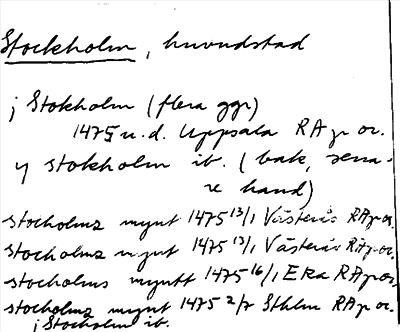 Stockholm, huvudstad
j Stokholm (flera ggr)
1475 u.d. Uppsala RA p or.
y stokholm ib. (bak, sena-
re hand)
stocholms mynt 1475 13/1 Västerås RA p or.
stocholms mynt 1475 13/1 Västerås RA p or.
stocholms myntt 1475 16/1 Eka RA p or.
stocholms mynt 1475 2/7 Sthlm RA p or.
j Stocholm ib.